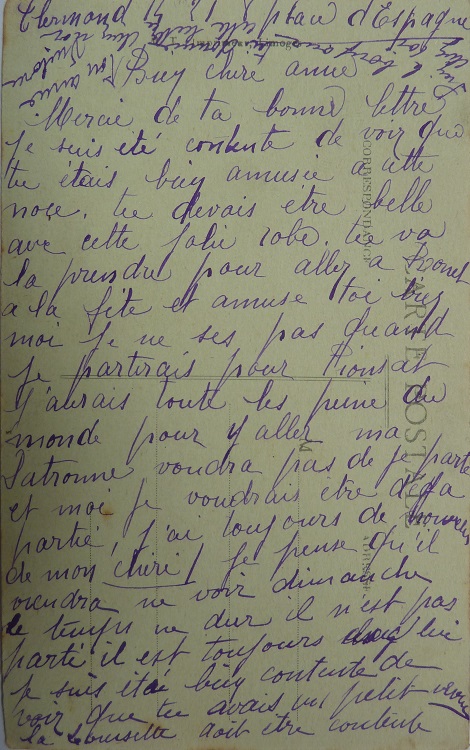 Clermond place d'Espagne
Biey chere annie
Mercie de ta bonne lettre
Je suis eté contente de voir que
tu étais biey amusie a cette
noce. tu devais être belle
avec cette jolie robe. tu va
la prendre pour aller a
a la fête et amuse toi biey
moi Je ne ses pas quand
Je partirais pour Pionsat
J'aurais toute les peine du
monde pour y aller ma
Patronne voudra pas de je parte
et moi je voudrais etre deja
partie, J'ai toujours de nouvelles
de mon cheri! Je pense qu'il
viendra me voir dimanche
le temps me dur il n'est pas
parté il est toujours
Je suis étai biey contente de
voir que tu avais un petit neveu
la doit être contente
CORRESPONDANCE
CARTE POSTALE
ADRESSE